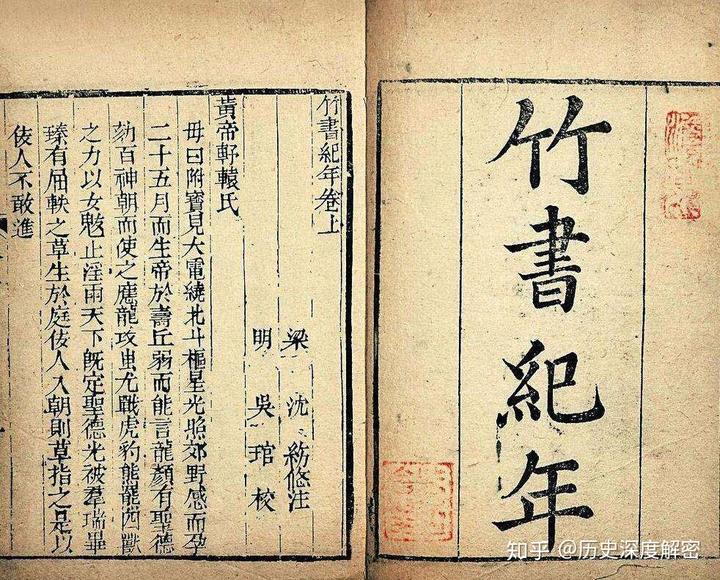 竹書紀年
竹書紀年卷上
梁 沈 注
明 吳琯校
黃帝軒轅氏
母曰附寶見大電繞北斗樞星光照郊野感而孕
二十五月而生帝於壽丘弱而能言龍顏有聖德
劾百神朝而使之應龍攻蚩尤戰虎豹熊羆四獸
之力以女魃止淫雨天下既定聖德光被羣瑞畢
臻有屈軼之草生於庭佞人入朝則草指之是以
佞人不敢進
知乎 @历史深度解密